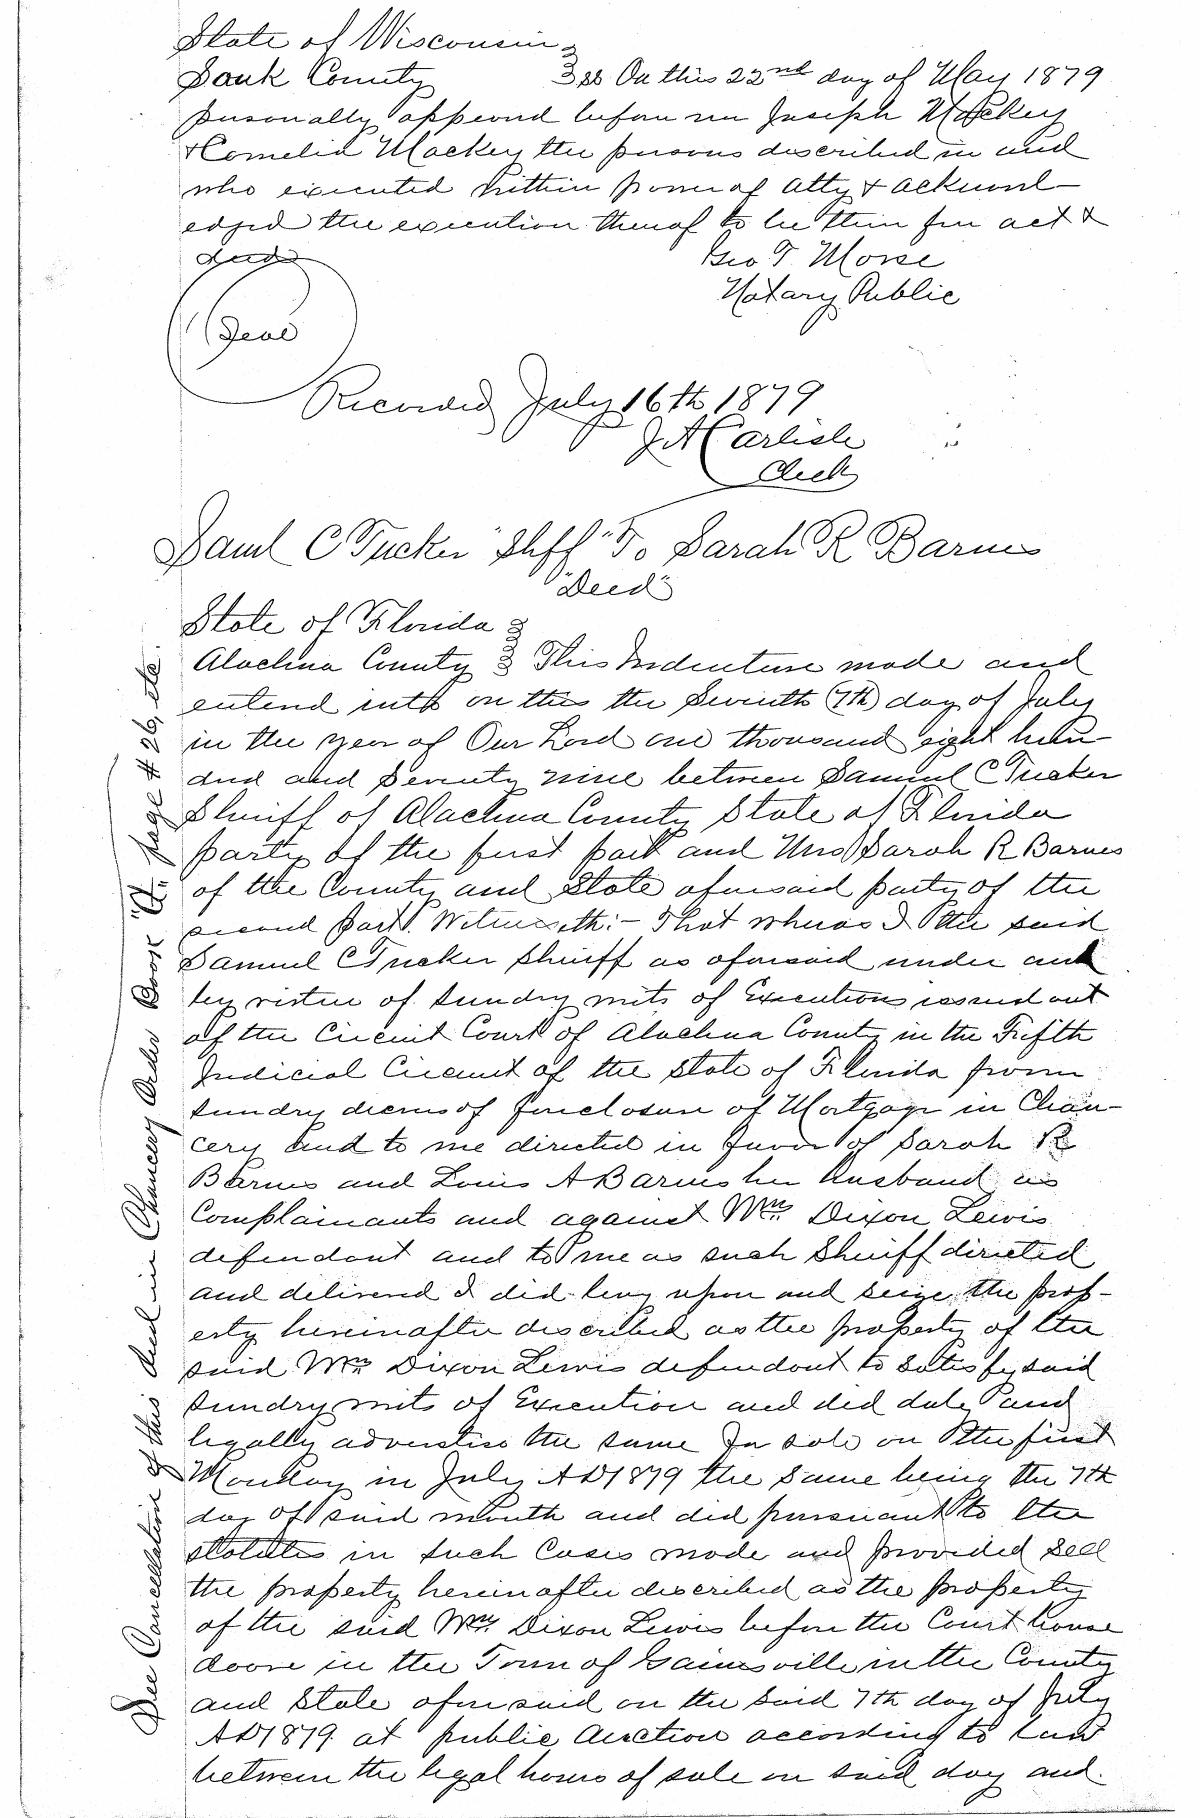 State of Wisconsin
Sauk County } ss On this 22nd day of May 1879
personally appeared before me Joseph Mackey
& Cornelia Mackey the persons described in and
who executed within power of atty & acknowl-
edged the execution thereof to be their free act &
deed
Geo T. Morse
Notary Public
(Seal
Recorded July 16th 1879
J A Carlisle
Clerk
Saml C Tucker "Shff" To Sarah R Barnes
"Deed"
State of Florida }
Alachua County } This Indenture made and
entered into on this the Seventh (7th) day of July
in the year of Our Lord one thousand eight hun-
dred and Seventy nine between Samuel C Tucker
Sheriff of Alachua County State of Florida
party of the first part and Mrs Sarah R Barnes
of the County and State aforesaid party of the
second part. Witnesseth:- That whereas I the said
Samuel C Tucker Sheriff as aforesaid under and
by virtue of sundry writs of Execution issued out
of the Circuit Court of Alachua County in the Fifth
Judicial Circuit of the State of Florida from
sundry decrees of foreclosure of Mortgage in Chan-
cery and to me directed in favor of Sarah R
Barnes and Louis A Barnes her husband as
Complainants and against Wm Dixon Lewis
defendant and to me as such Sheriff directed
and delivered I did levy upon and seize the prop-
erty hereinafter described as the property of the
said Wm Dixon Lewis defendant to satisfy said
sundry writs of Execution and did duly and
legally advertise the same for sale on the first
Monday in July AD 1879 the same being the 7th
day of said month and did pursuant to the
statutes in such Cases made and provided sell
the property hereinafter described as the property
of the said Wm Dixon Lewis before the Court house
doore in the Town of Gainesville in the County
and State aforesaid on the said 7th day of July
AD 1879 at public Auction according to Law
between the legal hours of sale on said day and
See Cancellation of this deed in Chancery Order Book "A." page # 26, etc.